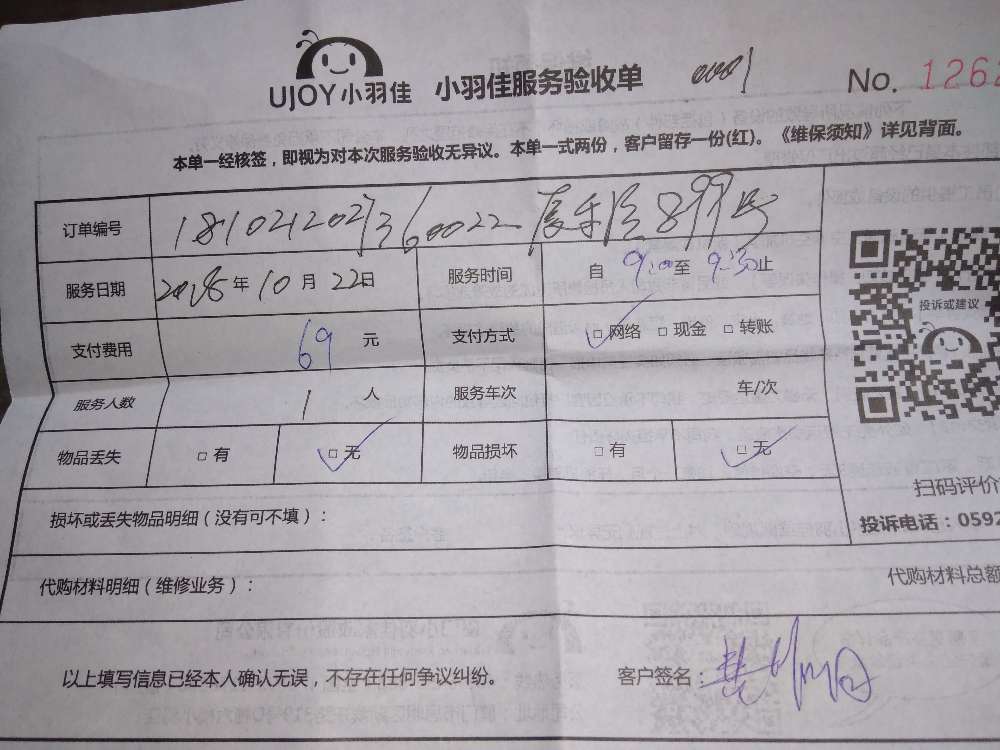 UJOY小羽佳 小羽佳服务验收单 0001 No. 1262
本单一经核签，即视为对本次服务验收无异议。本单一式两份，客户留存一份(红)。《维保须知》详见背面。
订单编号 181021202736 0022 899号
服务日期 2018年10月22日 服务时间 自9:00至9:30止
支付费用 69 元 支付方式 □网络 □现金 □转账
服务人数 1 人 服务车次 车/次
物品丢失 □有 □无 物品损坏 □有 □无
投诉或建议
扫码评价
投诉电话：0592
损坏或丢失物品明细（没有可不填）：
代购材料明细（维修业务）： 代购材料总额
以上填写信息已经本人确认无误，不存在任何争议纠纷。 客户签名：